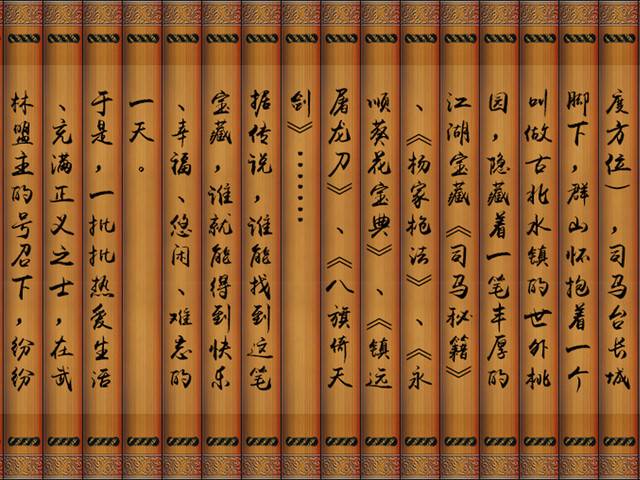 度方位），司马台长城
脚下，群山怀抱着一个
叫做古北水镇的世外桃
园，隐藏着一笔丰厚的
江湖宝藏《司马秘籍》
、《杨家枪法》、《永
顺葵花宝典》、《镇远
屠龙刀》、《八旗倚天
剑》.......
据传说，谁能找到这笔
宝藏，谁就能得到快乐
、幸福、悠闲、难忘的
一天。
于是，一批批热爱生活
、充满正义之士，在武
林盟主的号召下，纷纷